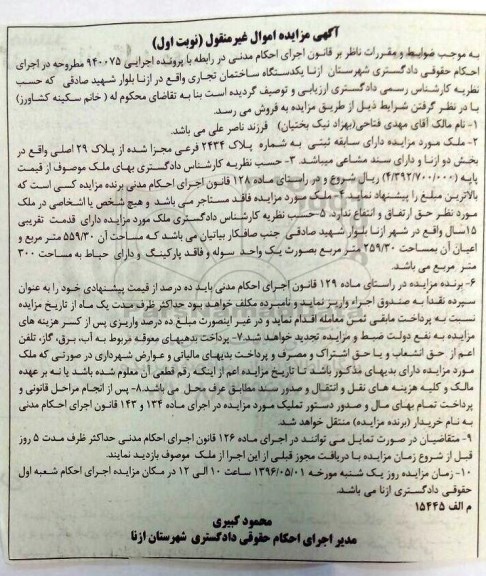 آگهی مزایده اموال غیرمنقول (نوبت اول)
به موجب ضوابط و مقررات ناظر بر قانون اجرای احکام مدنی در رابطه با پرونده اجرایی ۹۴۰۰۷۵ مطروحه در اجرای
احکام حقوقی دادگستری شهرستان ازنا یکدستگاه ساختمان تجاری واقع در ازنا بلوار شهید صادقی که حسب
نظریه کارشناس رسمی دادگستری ارزیابی و توصیف گردیده است بنا به تقاضای محکوم له ( خانم سکینه کشاورز)
با در نظر گرفتن شرایط ذیل از طریق مزایده به فروش می رسد.
۱- نام مالک آقای مهدی فتاحی(بهزاد نیک بختیان) فرزند ناصر علی می باشد.
۲- ملک مورد مزایده دارای سابقه ثبتی به شماره پلاک ۲۴۳۴ فرعی مجزا شده از پلاک ۲۹ اصلی واقع در
بخش دو ازنا و دارای سند مشاعی میباشد. ۳- حسب نظریه کارشناس دادگستری بهای ملک موصوف از قیمت
پایه (۴/۳۹۲/۷۰۰/۰۰۰) ریال شروع و در راستای ماده ۱۲۸ قانون اجرای احکام مدنی برنده مزایده کسی است که
بالاترین مبلغ را پیشنهاد نماید ۴- ملک مورد مزایده فاقد مستاجر می باشد و هیچ شخص یا اشخاصی در ملک
مورد نظر حق ارتفاق و انتفاع ندارد. ۵- حسب نظریه کارشناس دادگستری ملک مورد مزایده دارای قدمت تقریبی
۱۵سال واقع در شهر ازنا بلوار شهید صادقی جنب صافکار بیاتیان می باشد که مساحت آن ۵۵۹/۳۰ متر مربع و
اعیان آن بمساحت ۲۵۹/۳۰ متر مربع بصورت یک واحد سوله و فاقد پارکینگ و دارای حیاط به مساحت ۳۰۰
متر مربع می باشد.
۶- برنده مزایده در راستای ماده ۱۲۹ قانون اجرای احکام مدنی باید ده درصد از قیمت پیشنهادی خود را به عنوان
سپرده نقداً به صندوق اجراء واریز نماید و نامبرده مکلف خواهد بود حداکثر ظرف مدت یک ماه از تاریخ مزایده
نسبت به پرداخت مابقی ثمن معامله اقدام نماید و در غیر اینصورت مبلغ ده درصد واریزی پس از کسر هزینه های
مزایده به نفع دولت ضبط و مزایده تجدید خواهد شد.۷- پرداخت بدهیهای معوقه مربوط به آب، برق، گاز، تلفن
اعم از حق انشعاب و یا حق اشتراک و مصرف و پرداخت بدهیهای مالیاتی و عوارض شهرداری در صورتی که ملک
مورد مزایده دارای بدهیهای مذکور باشد تا تاریخ مزایده اعم از اینکه رقم قطعی آن معلوم شده باشد یا نه بر عهده
مالک و کلیه هزینه های نقل و انتقال و صدور سند مطابق عرف محل می باشد.۸- پس از انجام مراحل قانونی و
پرداخت تمام بهای مال و صدور دستور تملیک مورد مزایده در اجرای ماده ۱۳۴ و ۱۴۳ قانون اجرای احکام مدنی
به نام خریدار (برنده مزایده) منتقل خواهد شد.
۹- متقاضیان در صورت تمایل می توانند در اجرای ماده ۱۲۶ قانون اجرای احکام مدنی حداکثر ظرف مدت ۵ روز
قبل از شروع زمان مزایده با دریافت مجوز قبلی از این اجرا از ملک موصوف بازدید نمایند.
۱۰- زمان مزایده روز یک شنبه مورخه ۱۳۹۶/۰۵/۰۱ ساعت ۱۰ الی ۱۲ در مکان مزایده اجرای احکام شعبه اول
حقوقی دادگستری ازنا می باشد.
م الف ۱۵۴۴۵
محمود کبیری
مدیر اجرای احکام حقوقی دادگستری شهرستان ازنا